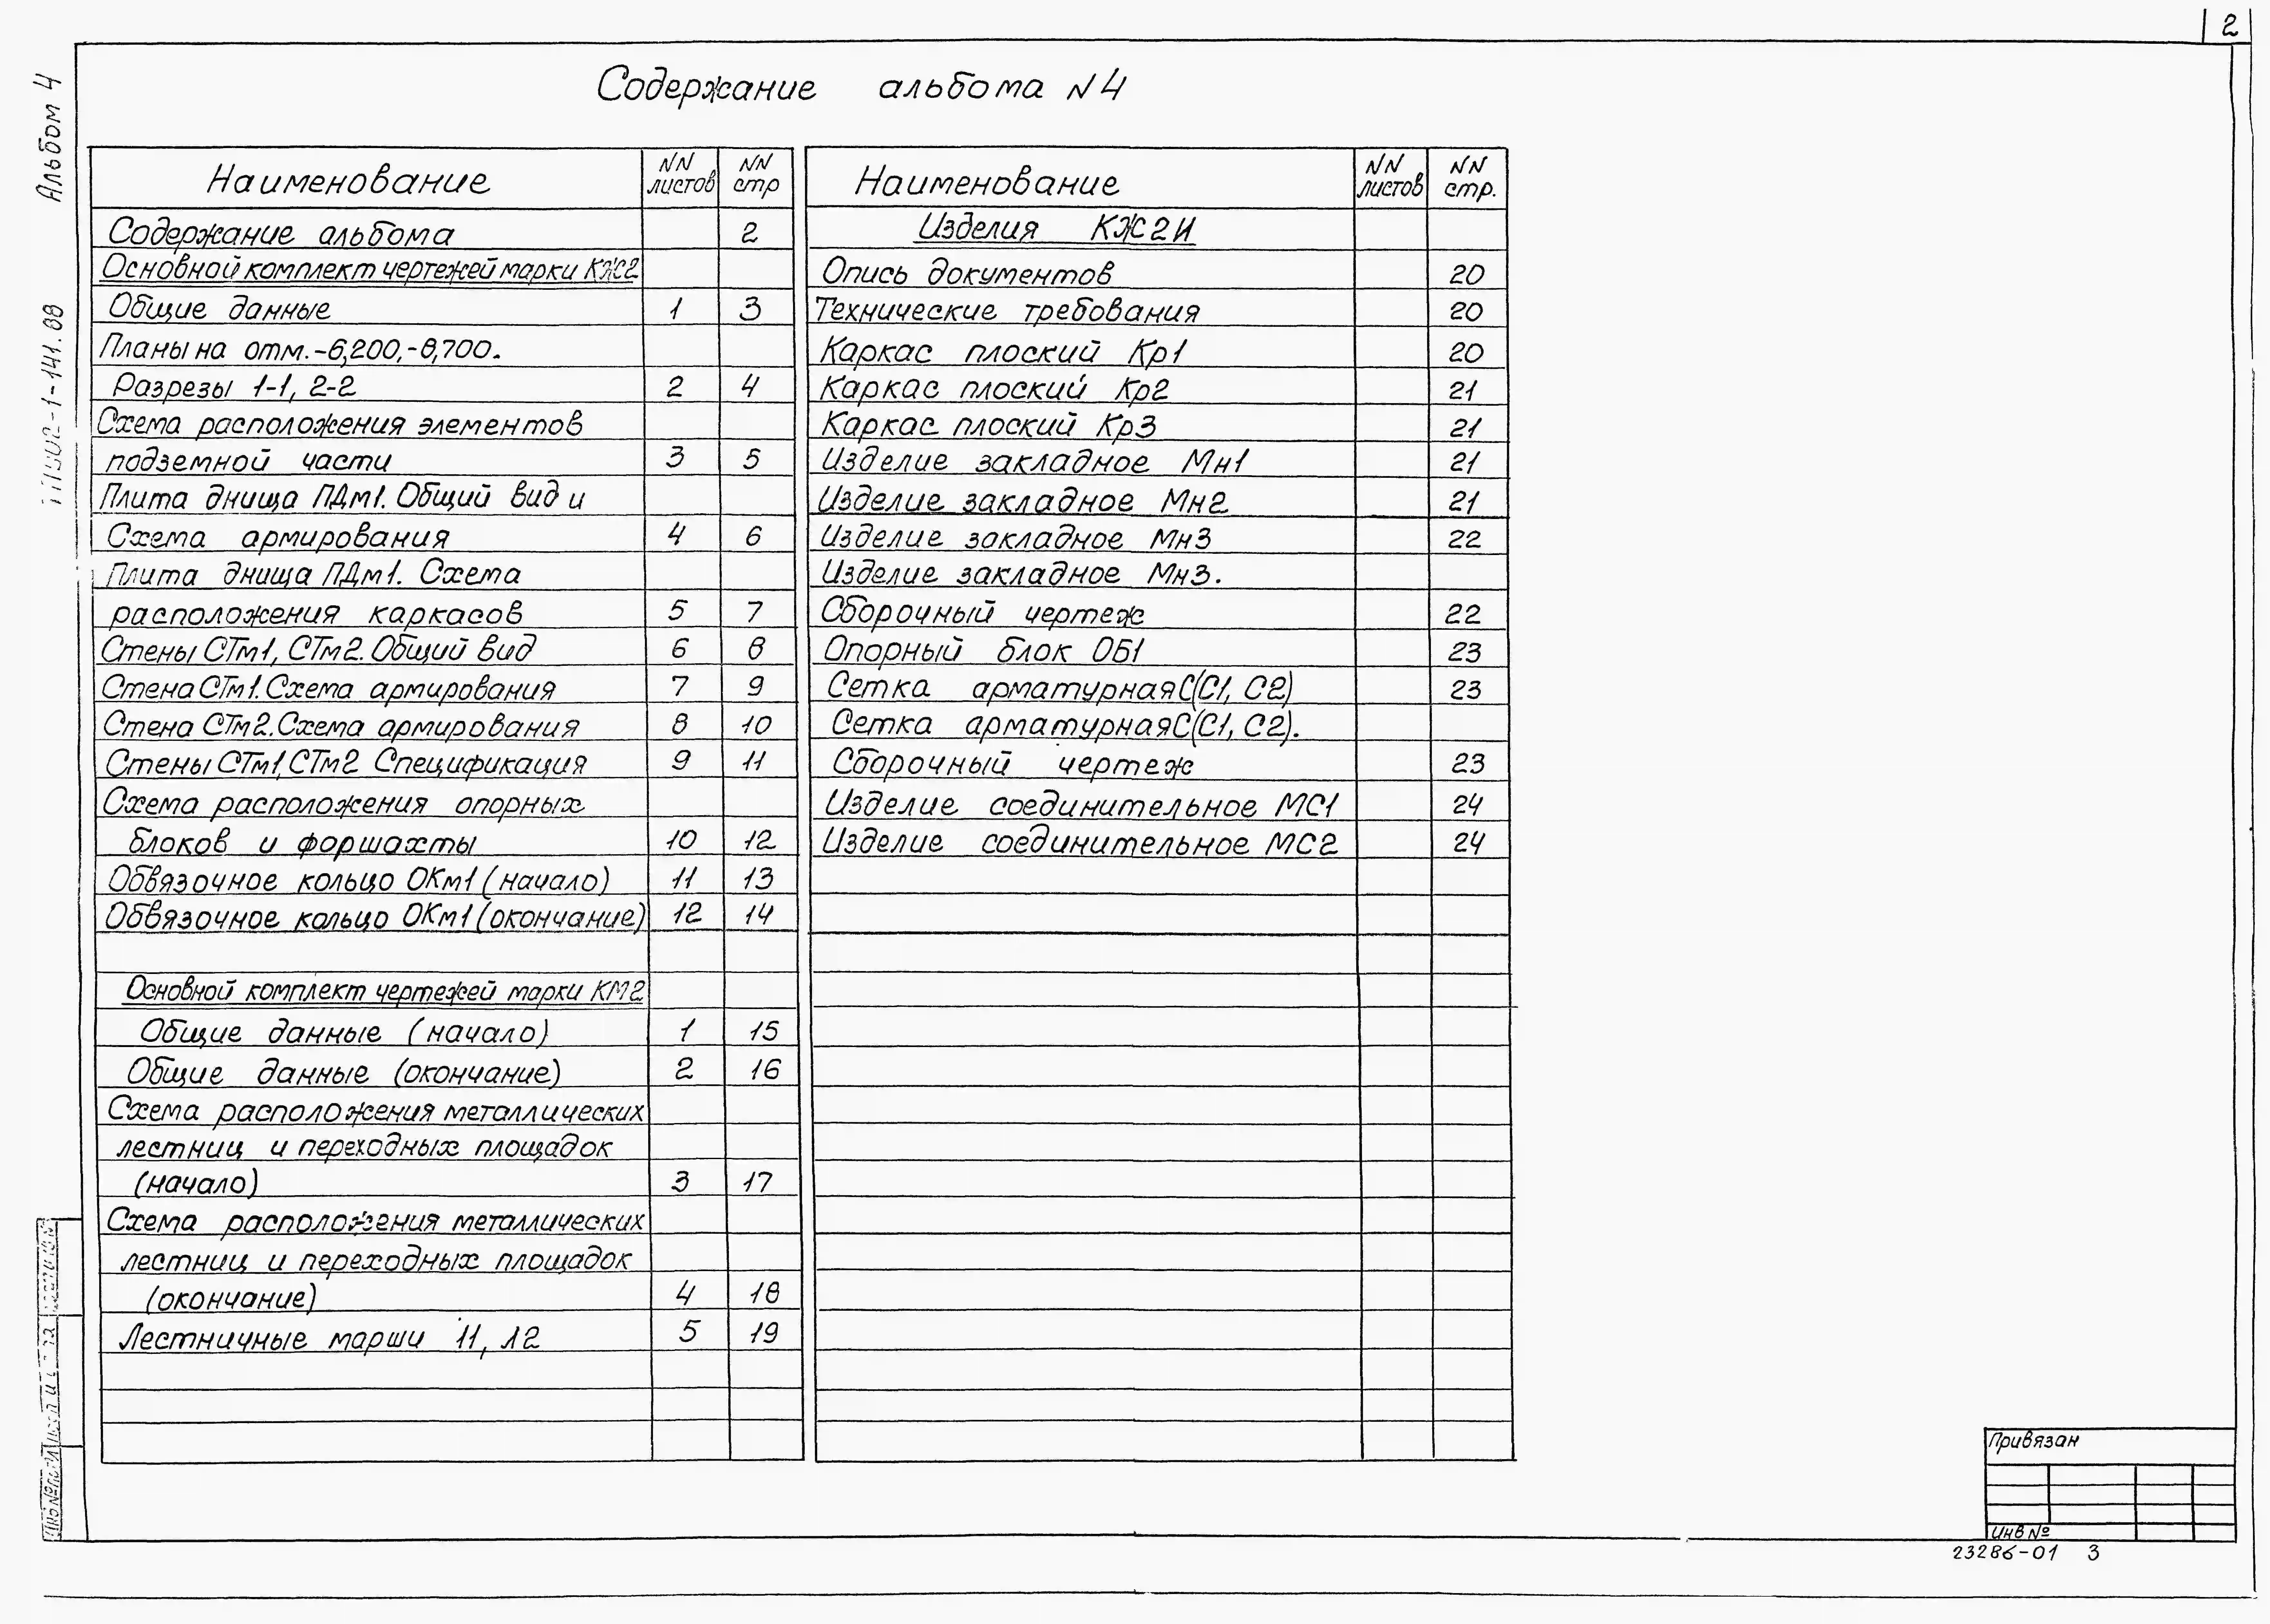 2
Содержание альбома №4
Альбом 4
Наименование NN листов NN стр
Содержание альбома 2
Основной комплект чертежей марки КЖ2
Общие данные 1 3
Планы на отм.-6,200,-8,700.
Разрезы 1-1, 2-2 2 4
Схема расположения элементов
подземной части 3 5
Плита днища ПДм1. Общий вид и
Схема армирования 4 6
Плита днища ПДм1. Схема
расположения каркасов 5 7
Стены СТм1, СТм2. Общий вид 6 8
Стена СТм1. Схема армирования 7 9
Стена СТм2. Схема армирования 8 10
Стены СТм1, СТм2 Спецификация 9 11
Схема расположения опорных
блоков и форшахты 10 12
Обвязочное кольцо ОКм1 (начало) 11 13
Обвязочное кольцо ОКм1 (окончание) 12 14
Основной комплект чертежей марки КМ2
Общие данные (начало) 1 15
Общие данные (окончание) 2 16
Схема расположения металлических
лестниц и переходных площадок
(начало) 3 17
Схема расположения металлических
лестниц и переходных площадок
(окончание) 4 18
Лестничные марши 11, Л2 5 19
Наименование NN листов NN стр.
Изделия КЖ2И
Опись документов 20
Технические требования 20
Каркас плоский Кр1 20
Каркас плоский Кр2 21
Каркас плоский Кр3 21
Изделие закладное Мн1 21
Изделие закладное Мн2 21
Изделие закладное Мн3 22
Изделие закладное Мн3.
Сборочный чертеж 22
Опорный блок ОБ1 23
Сетка арматурная С(С1, С2) 23
Сетка арматурная С(С1, С2).
Сборочный чертеж 23
Изделие соединительное МС1 24
Изделие соединительное МС2 24
Привязан
Инв №
23286-01 3